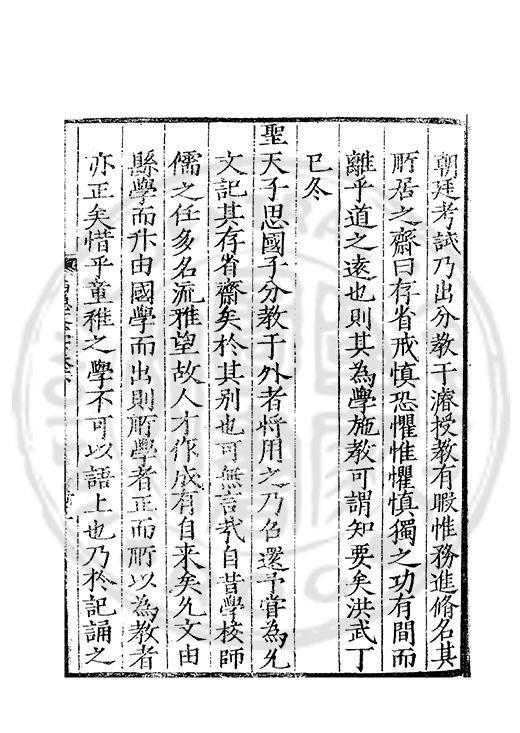 朝廷考試乃出分敎于濬授敎有暇惟務進脩名其
所居之齋曰存省戒慎恐懼惟懼慎獨之功有間而
離乎道之遠也則其為學施敎可謂知要矣洪武丁
巳冬
聖天子思國子分敎于外者將用之乃名還予嘗為允
文記其存省齋矣於其别也可無言㢤自昔學校師
儒之任多名流雅望故人才作成有自来矣允文由
縣學而升由國學而出則所學者正而所以為敎者
亦正矣惜乎童稚之學不可以語上也乃於記誦之